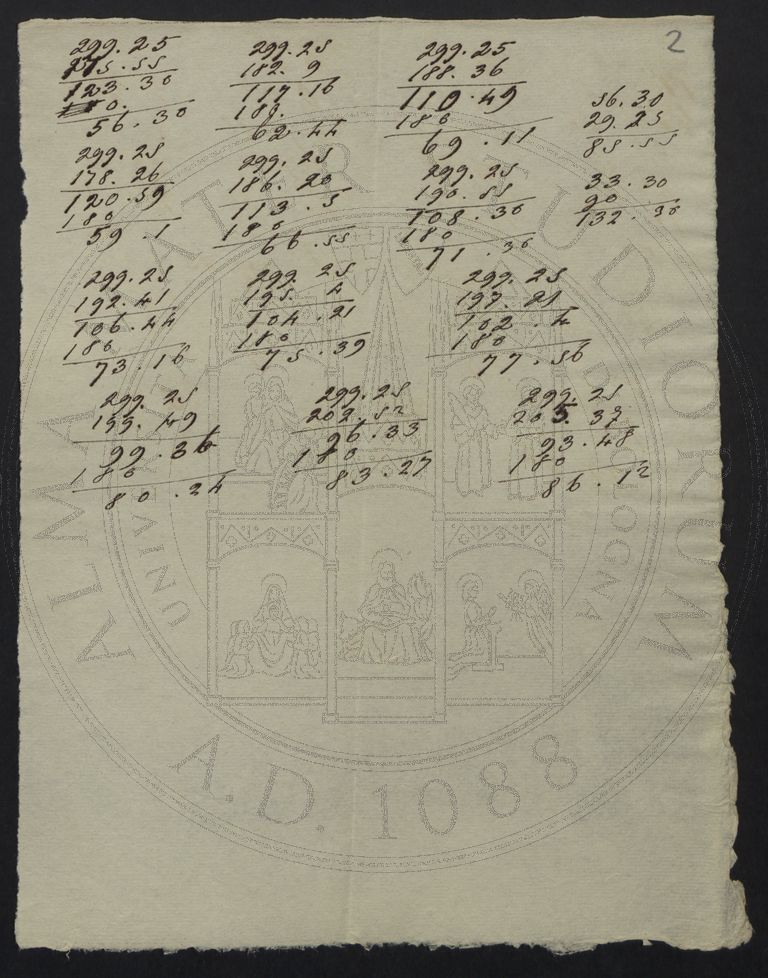 2
299.25
175.55
123.30
180.
56.30
299.25
182.9
117.16
180.
62.44
299.25
188.36
110.49
180
69.11
56.30
29.25
85.55
299.25
178.26
120.59
180
59.1
299.25
186.20
113.5
180
66.55
299.25
190.55
108.30
180
71.30
33.30
90
132.30
299.25
192.41
106.44
180
73.16
299.25
195.4
104.21
180
75.39
299.25
197.21
102.4
180
77.56
299.25
199.49
99.36
180
80.24
299.25
202.52
96.33
180
83.27
299.25
205.37
93.48
180
86.12
ALMA MATER STUDIORUM
UNIVERSITÀ DI BOLOGNA
A.D. 1088